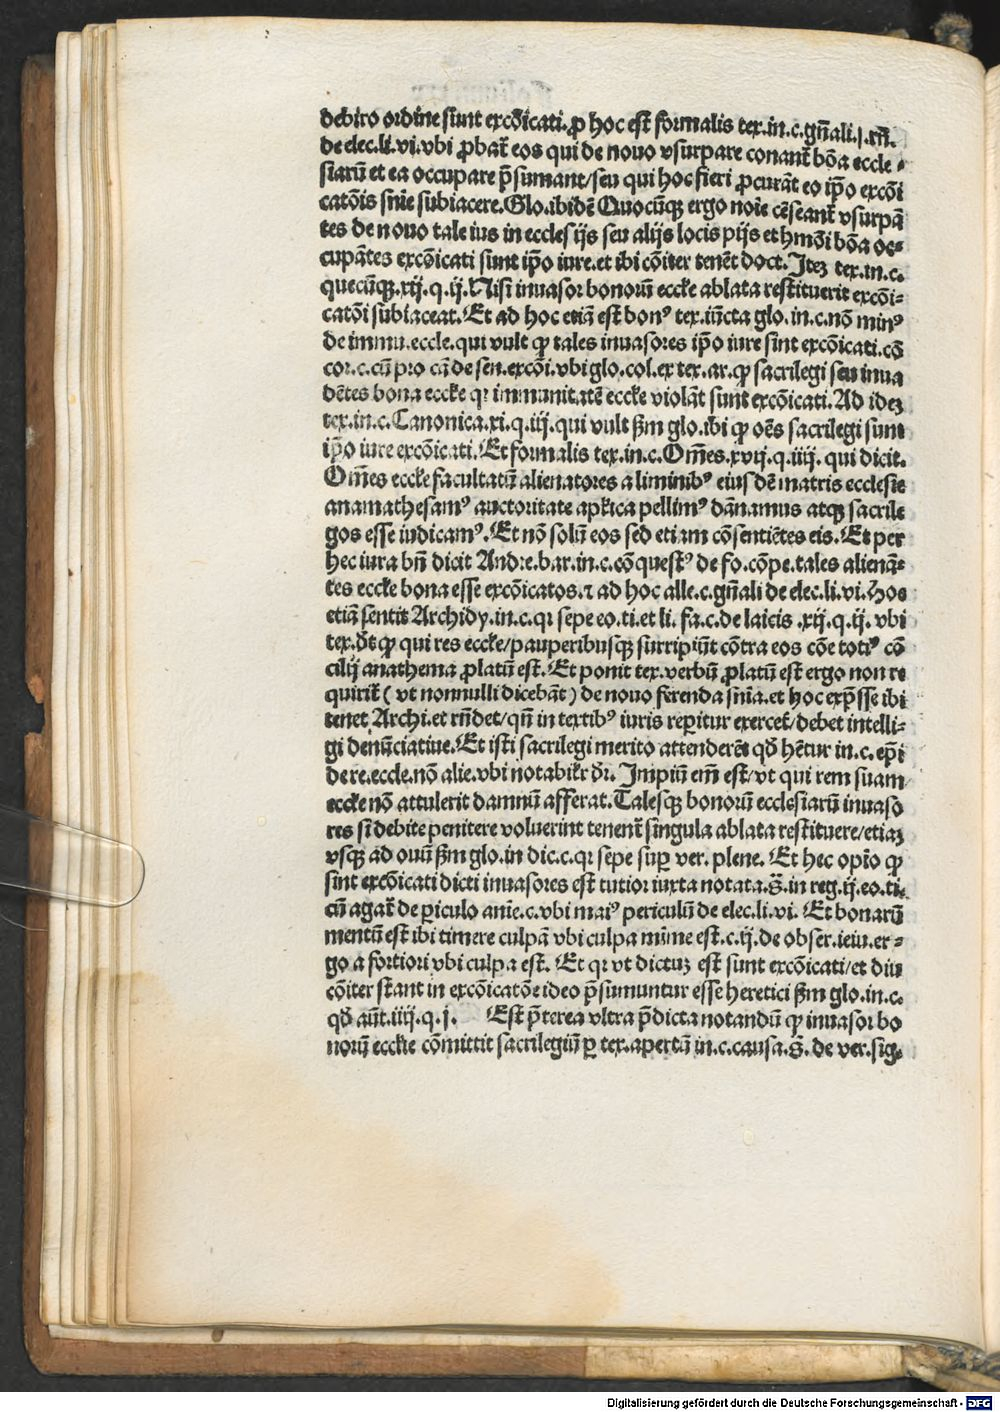 debito ordine sunt excōicati. ꝓ hoc est formalis tex.in.c.gn̄ali.j.rn̄.
de elec.li.vi.vbi ꝓbat᷑ eos qui de nouo vsurpare conant᷑ bōa eccle⸗
siarū et ea occupare p̄sumant/seu qui hoc fieri ꝓcurāt eo ip̄o excōi
catōis snīe subiacere.Glo.ibidē Quocūqꝫ ergo noīe cēseant᷑ vsurpā
tes de nouo tale ius in ecclesijs seu alijs locis pijs et hmōi bōa oc⸗
cupātes excōicati sunt ip̄o iure.et ibi cōiter tenēt doct.Iteꝫ tex.in.c.
quecūqꝫ.xij.q.ij.Nisi inuasor bonorū eccłe ablata restituerit excōi⸗
catōi subiaceat.Et ad hoc etiā est bonꝰ tex.iūcta glo.in.c.nō minꝰ
de immu.eccle.qui vult ꝙ tales inuasores ip̄o iure sint excōicati.cō
cor.c.cū pro cā de sen.excōi.vbi glo.col.ex tex.ar.ꝙ sacrilegi seu inua
dētes bona eccłe qꝛ immunitatē eccłe violāt sunt excōicati.Ad ideꝫ
tex.in.c.Canonica.xi.q.iij.qui vult ẜm glo.ibi ꝙ oēs sacrilegi sunt
ip̄o iure excōicati.Et formalis tex.in.c.Om̄es.xvij.q.iiij. qui dicit.
Om̄es eccłe facultatū alienatores a liminibꝰ eiusdē matris ecclesie
anamathesamꝰ auctoritate apłica pellimꝰ dānamus atqꝫ sacrile
gos esse iudicamꝰ.Et nō solū eos sed etiam cōsentiētes eis.Et per
hec iura bn̄ dicit Andre.bar.in.c.cōquestꝰ de fo.cōpe.tales alienā⸗
tes eccłe bona esse excōicatos.⁊ ad hoc alle.c.gn̄ali de elec.li.vi.Hoc
etiā sentit Archidy.in.c.qꝛ sepe eo.ti.et li. fa.c.de laicis .xij.q.ij. vbi
tex.dt̄ ꝙ qui res eccłe/pauperibusqꝫ surripiūt cōtra eos cōe totiꝰ cō
cilij anathema ꝓlatū est. Et ponit tex.verbū ꝓlatū est ergo non re
quirit᷑ (vt nonnulli dicebāt) de nouo ferenda snīa.et hoc exp̄sse ibi
tenet Archi.et rn̄det/qn̄ in textibꝰ iuris reꝑitur exercet᷑/debet intelli⸗
gi denūciatiue.Et isti sacrilegi merito attenderēt qd̄ hētur in.c.ep̄i
de re.eccle.nō alie.vbi notabilr̄ dr̄. Impiū em̄ est/vt qui rem suam
eccłe nō attulerit damnū afferat.Talesqꝫ bonorū ecclesiarū inuaso
res si debite penitere voluerint tenent᷑ singula ablata restituere/etiaꝫ
vsqꝫ ad ouū ẜm glo.in dic.c.qꝛ sepe suꝑ ver. plene. Et hec opīo ꝙ
sint excōicati dicti inuasores est tutior iuxta notata.s̄.in reg.ij.eo.ti.
cū agat᷑ de ꝑiculo anīe.c.vbi maiꝰ periculū de elec.li.vi. Et bonarū
mentū est ibi timere culpā vbi culpa mīme est.c.ij.de obser.ieiu.er⸗
go a fortiori vbi culpa est. Et qꝛ vt dictuꝫ est sunt excōicati/et diu
cōiter stant in excōicatōe ideo p̄sumuntur esse heretici ẜm glo.in.c.
qd̄ aūt.iiij.q.j. Est p̄terea vltra p̄dicta notandū ꝙ inuasor bo
norū eccłie cōmittit sacrilegiū ꝑ tex.apertū in.c.causa.s̄. de ver.sig.
Digitalisierung gefördert durch die Deutsche Forschungsgemeinschaft - DFG